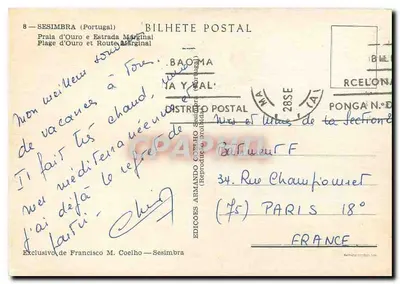 8 — SESIMBRA (Portugal)
Praia d'Ouro e Estrada Marginal
Plage d'Ouro et Route Marginal
BILHETE POSTAL
Mon meilleur
de vacances à Tous.
Il fait très chaud, une
mer méditerranéenne et
j'ai déjà le regret de
partir.
Exclusivo de Francisco M. Coelho — Sesimbra
EDIÇÕES ARMANDO COELHO
(Reprodução proibida)
BAOMA
IA Y BAL
DISTRITO POSTAL
MA
28SE
(A)
BIL
RCELONA
PONGA N.º D
CPARAMA
de la Section
Bâtiment F
34, Rue Championnet
(75) PARIS 18º
FRANCE